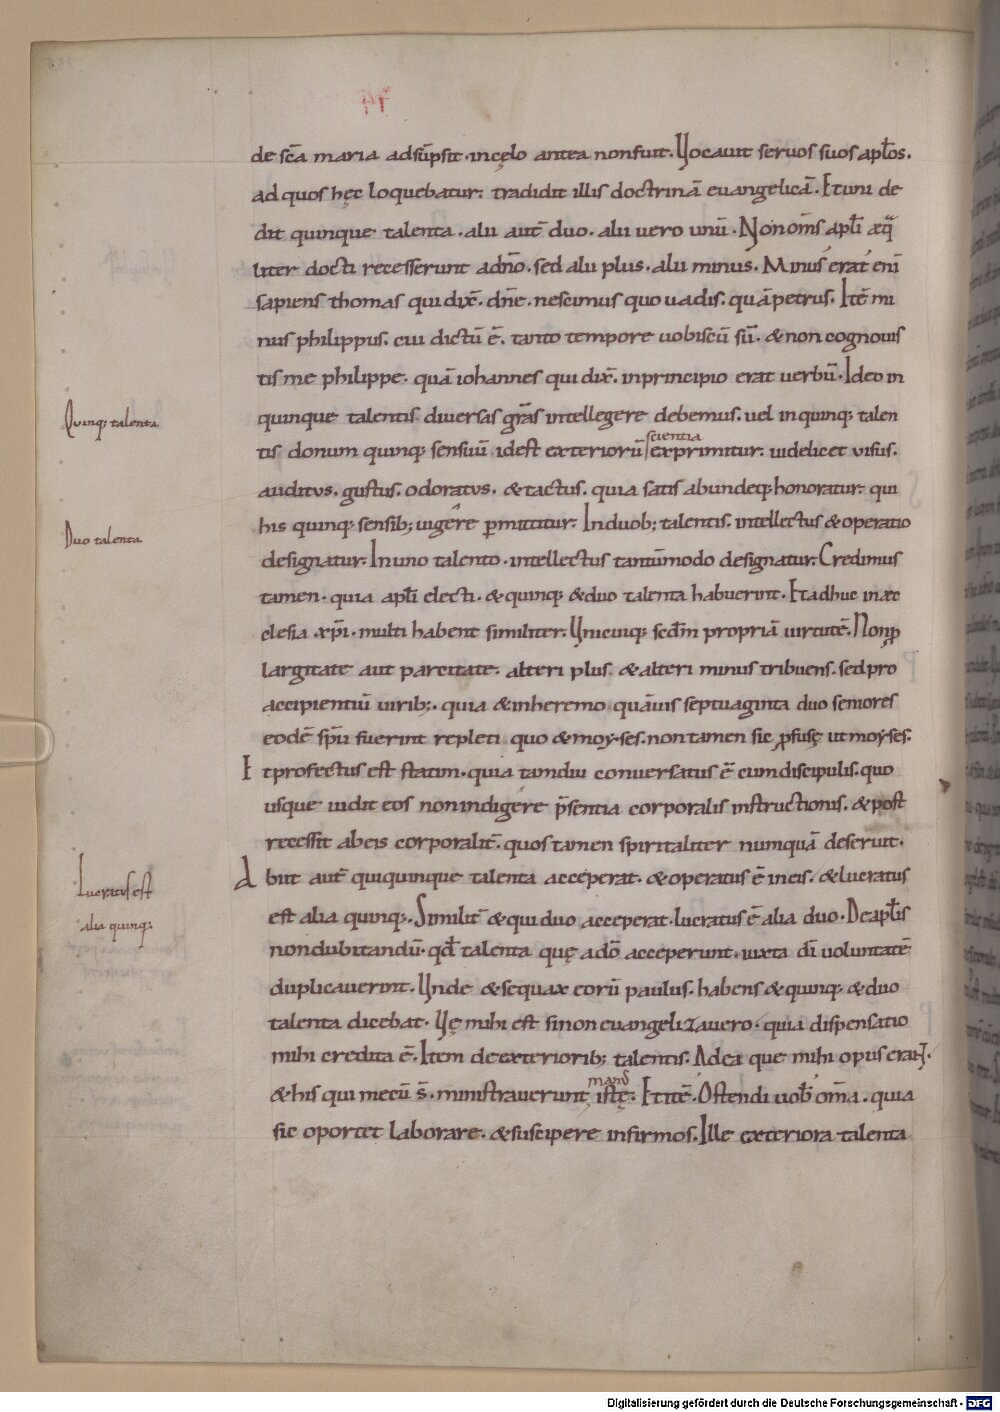 de scā maria adsūpsit · incęlo antea nonfuit. Uocauit seruos suos apłos.
ad quos hęc loquebatur: tradidit illis doctrinā euangelicā. Etuni de
dit quinque talenta · alii aut̄ duo · alii uero unū. Non om̄s apłi æq̄
liter docti recesserunt adn̄o · sed alii plus · alii minus. Minus erat enī
sapiens thomas qui dix̄. dn̄e · nescimus quo uadis. quā petrus. Itē mi
nus philippus. cui dictū ē. tanto tempore uobiscū sū. & non cognouis
tis me philippe. quā iohannes qui dix̄. inprincipio erat uerbū. Ideo in
Quinq; talenta
quinque talentis diuersas gr̄as intellegere debemus. uel inquinq; talen
scientia
tis donum quinq; sensuū idest exteriorū exprimitur. uidelicet visus.
auditvs. gustus. odoratvs. & tactus. quia satis abundeq; honoratur. qui
his quinq; sensib; uigere pmittitur. In duob; talentis. intellectus & operatio
Duo talenta
designatur. In uno talento · intellectus tantūmodo designatur. Credimus
tamen · quia apłi electi · & quinq; & duo talenta habuerint. Et adhuc in æc
clesia xp̄i · multi habent similiter. Unicuiq; scdm̄ propriā uirtutē. Non p
largitate aut parcitate. alteri plus & alteri minus tribuens. sed pro
accipientiū uirib;. quia & inheremo quāuis septuaginta duo seniores
eodē sp̄u fuerint repleti quo & moy·ses. non tamen sic pfusę ut moy·ses.
Et profectus est statim · quia tamdiu conuersatus ē cum discipulis. quo
usque uidit eos non indigere p̄sentia corporalis instructionis. & post
recessit abeis corporalit̄. quos tamen spiritaliter numquā deseruit.
Lucratus est
alia quinq;.
Abiit aut̄ qui quinque talenta acceperat. & operatus ē ineis. & lucratus
est alia quinq;. Similit̄ & qui duo acceperat · lucratus ē alia duo. De apłis
non dubitandū. qđ talenta quę adō acceperunt · iuxta dī uoluntatē
duplicauerint. Unde & sequax eorū paulus. habens & quinq; & duo
talenta dicebat. Uę mihi est si non euangelizauero · quia dispensatio
mihi credita ē. Item de exteriorib; talentis. Ad ea que mihi opus erant.
man'
& his qui mecū s̄. ministrauerunt istę. Et itē. Ostendi uob̄ om̄a. quia
sic oportet laborare. & suscipere infirmos. Ille exteriora talenta
Digitalisierung gefördert durch die Deutsche Forschungsgemeinschaft - DFG